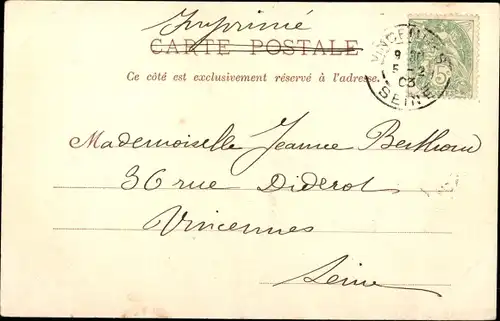 Imprimé
CARTE POSTALE
Ce côté est exclusivement réservé à l'adresse.
VINCENNES
5 - 2
03
SEINE
Mademoiselle Jeanne
36 rue Diderot
Vincennes
Seine